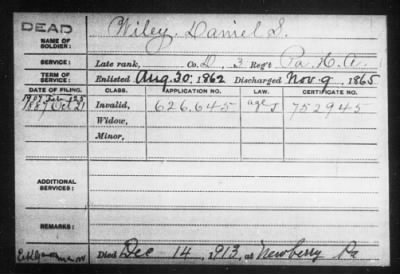 DEAD
NAME OF SOLDIER: Wiley, Daniel S.
SERVICE: Late rank, Co. D, 3 Reg't Pa. H. A.
TERM OF SERVICE: Enlisted Aug. 30, 1862 Discharged Nov. 9, 1865
DATE OF FILING. CLASS. APPLICATION NO. LAW. CERTIFICATE NO.
1907 Feb 25
1887 Oct 21 Invalid, 626.645 age 752945
Widow,
Minor,
ADDITIONAL SERVICES:
REMARKS:
Died Dec 14, 1913, at Newberry Pa